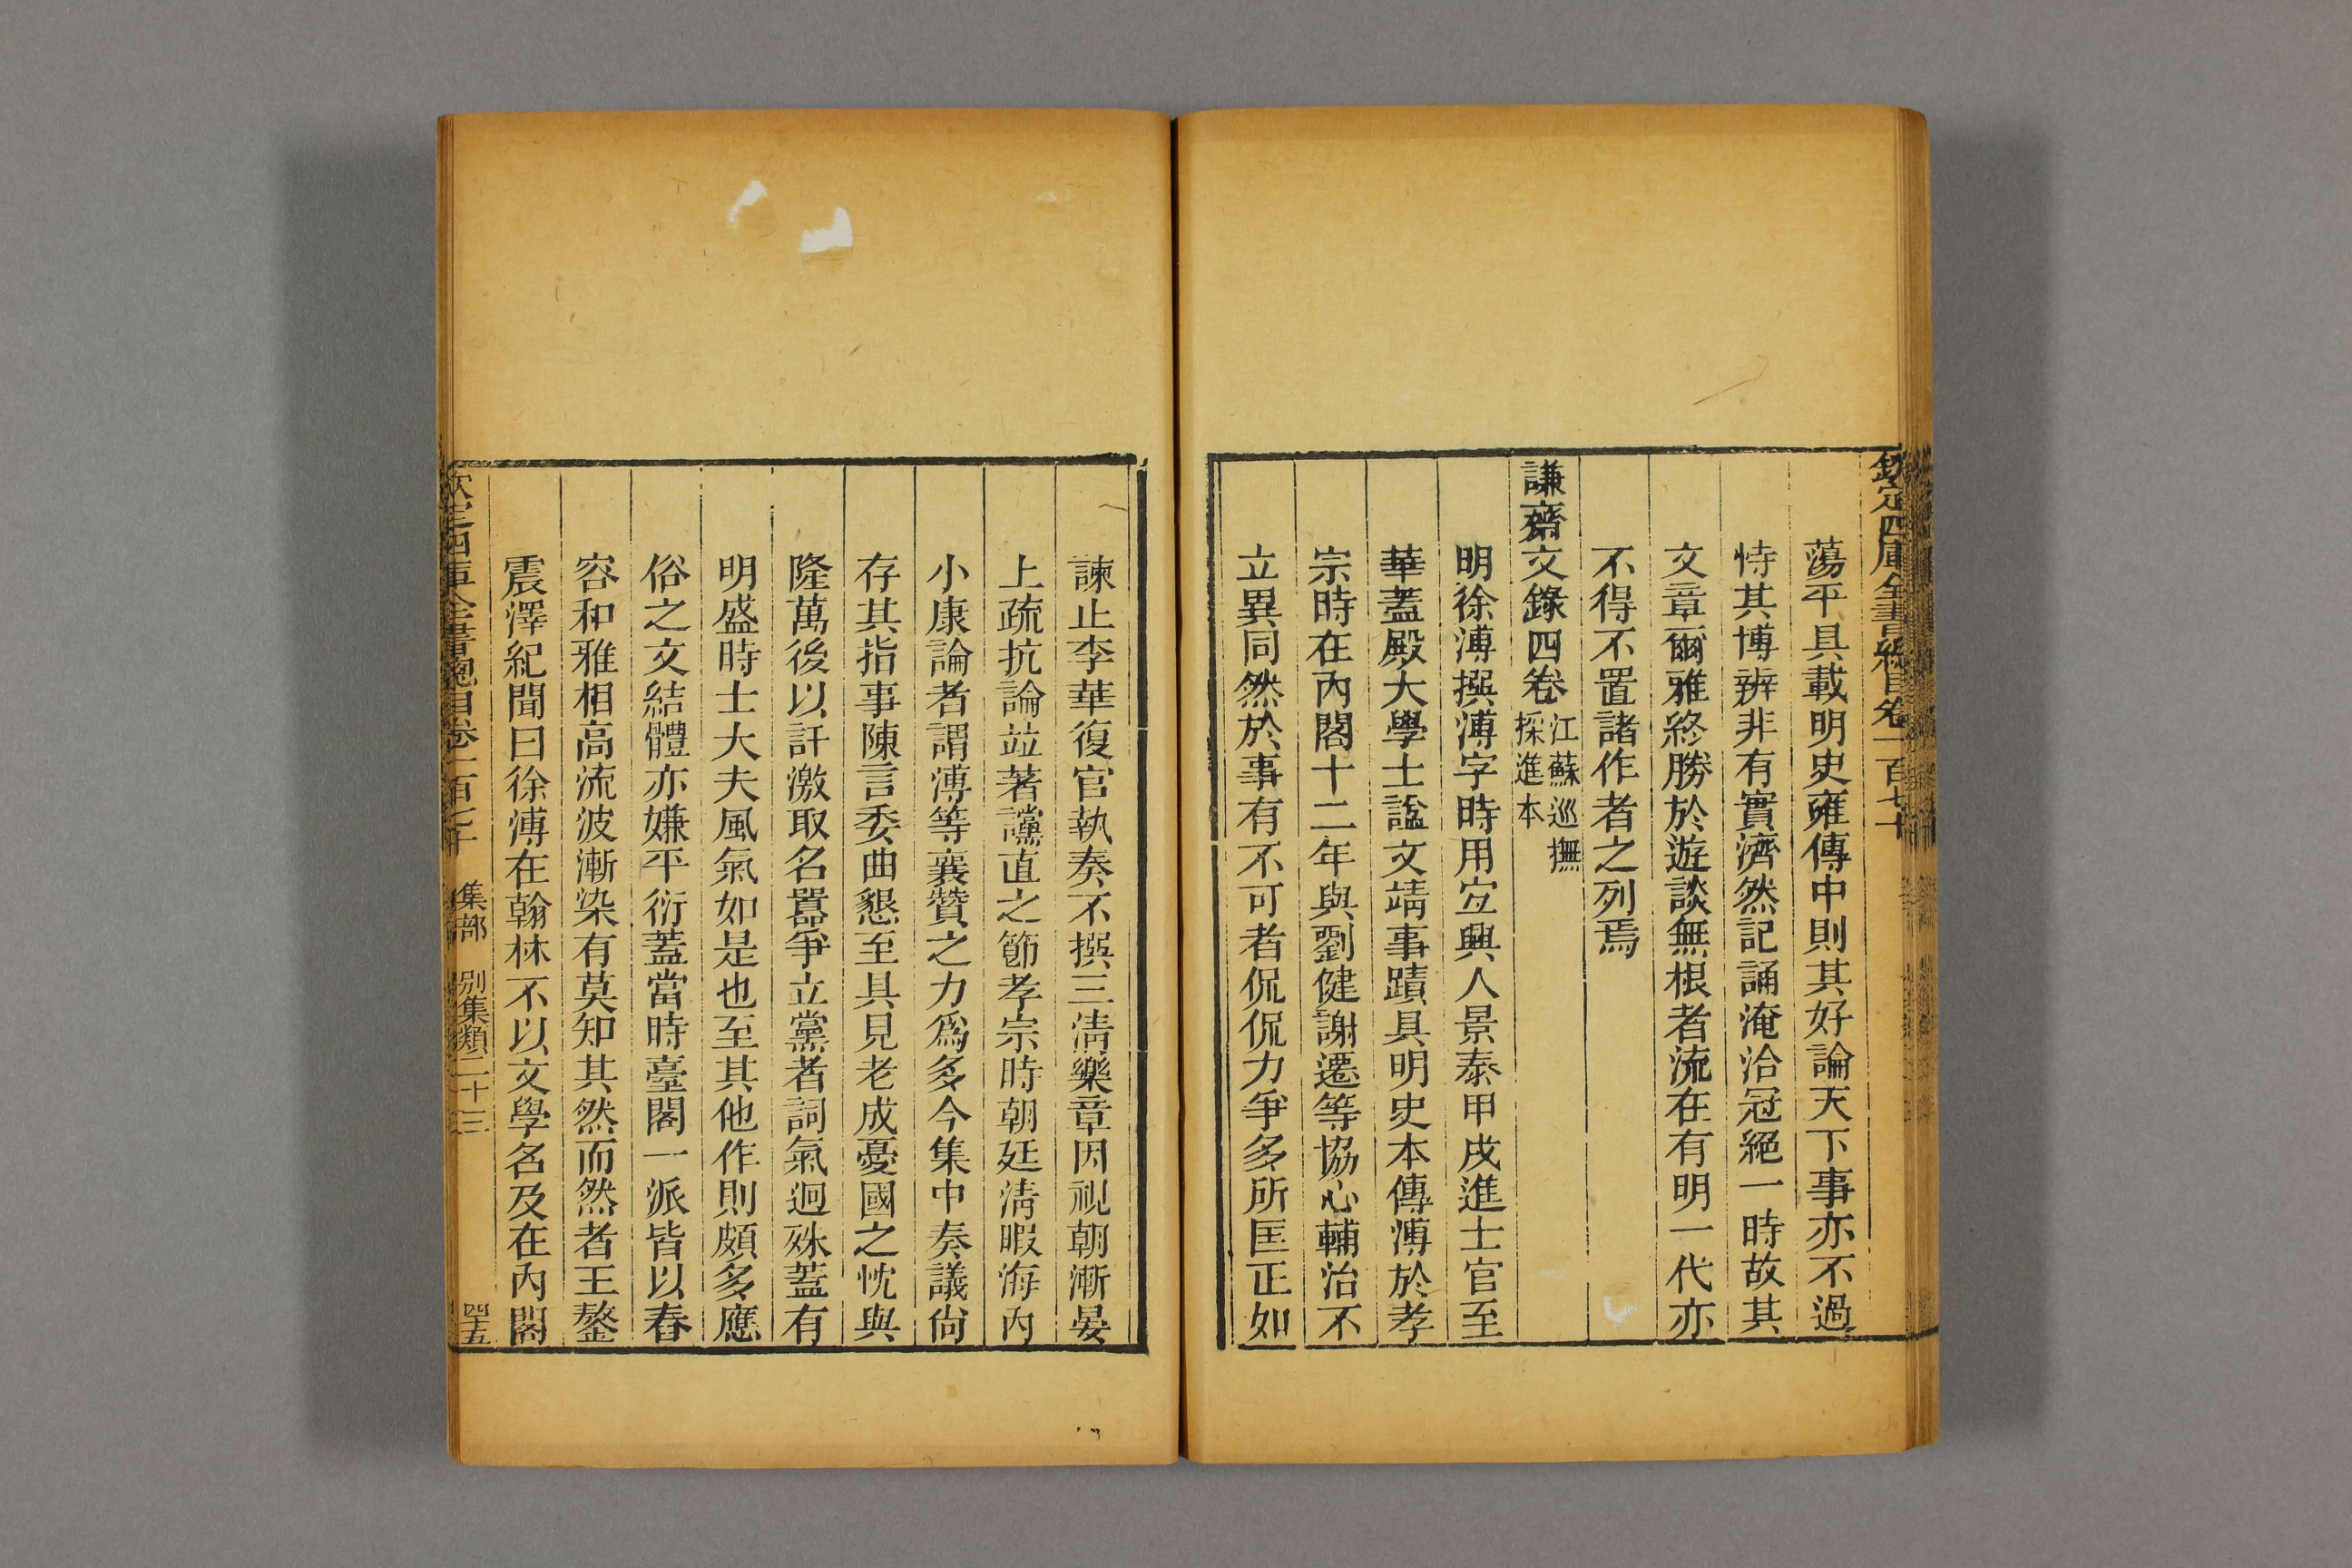 欽定四庫全書總目卷一百七十
蕩平具載明史雍傳中則其好論天下事亦不過
恃其博辨非有實濟然記誦淹洽冠絕一時故其
文章爾雅終勝於遊談無根者流在有明一代亦
不得不置諸作者之列焉
謙齋文錄四卷江蘇巡撫
採進本
明徐溥撰溥字時用宐興人景泰甲戌進士官至
華蓋殿大學士諡文靖事蹟具明史本傳溥於孝
宗時在內閣十二年與劉健謝遷等協心輔治不
立異同然於事有不可者侃侃力爭多所匡正如
諫止李華復官執奏不撰三淸樂章因視朝漸晏
上疏抗論竝著讜直之節孝宗時朝廷淸暇海內
小康論者謂溥等襄贊之力爲多今集中奏議尙
存其指事陳言委曲懇至具見老成憂國之忱與
隆萬後以訐激取名囂爭立黨者詞氣迥殊蓋有
明盛時士大夫風氣如是也至其他作則頗多應
俗之文結體亦嫌平衍蓋當時臺閣一派皆以舂
容和雅相高流波漸染有莫知其然而然者王鏊
震澤紀聞曰徐溥在翰林不以文學名及在內閣
欽定四庫全書總目卷一百七十 集部 別集類二十三 四十五